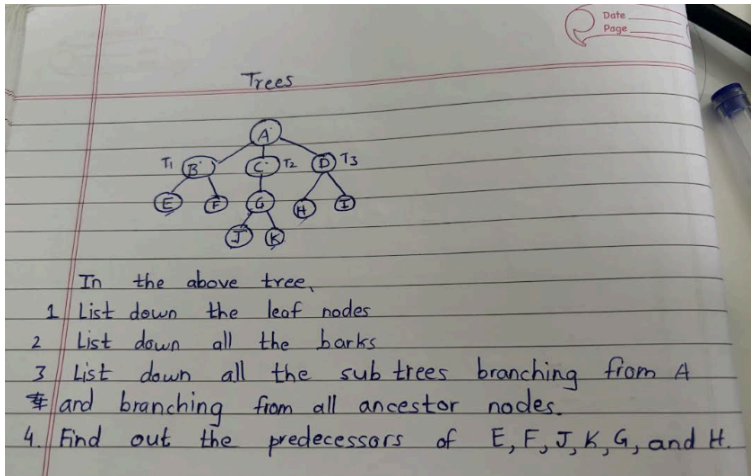 Date
Page
Trees
A
T1 B C T2 D T3
E F G H I
J K
In the above tree,
1 List down the leaf nodes
2 List down all the barks
3 List down all the sub trees branching from A
and branching from all ancestor nodes.
4. Find out the predecessors of E, F, J, K, G, and H.